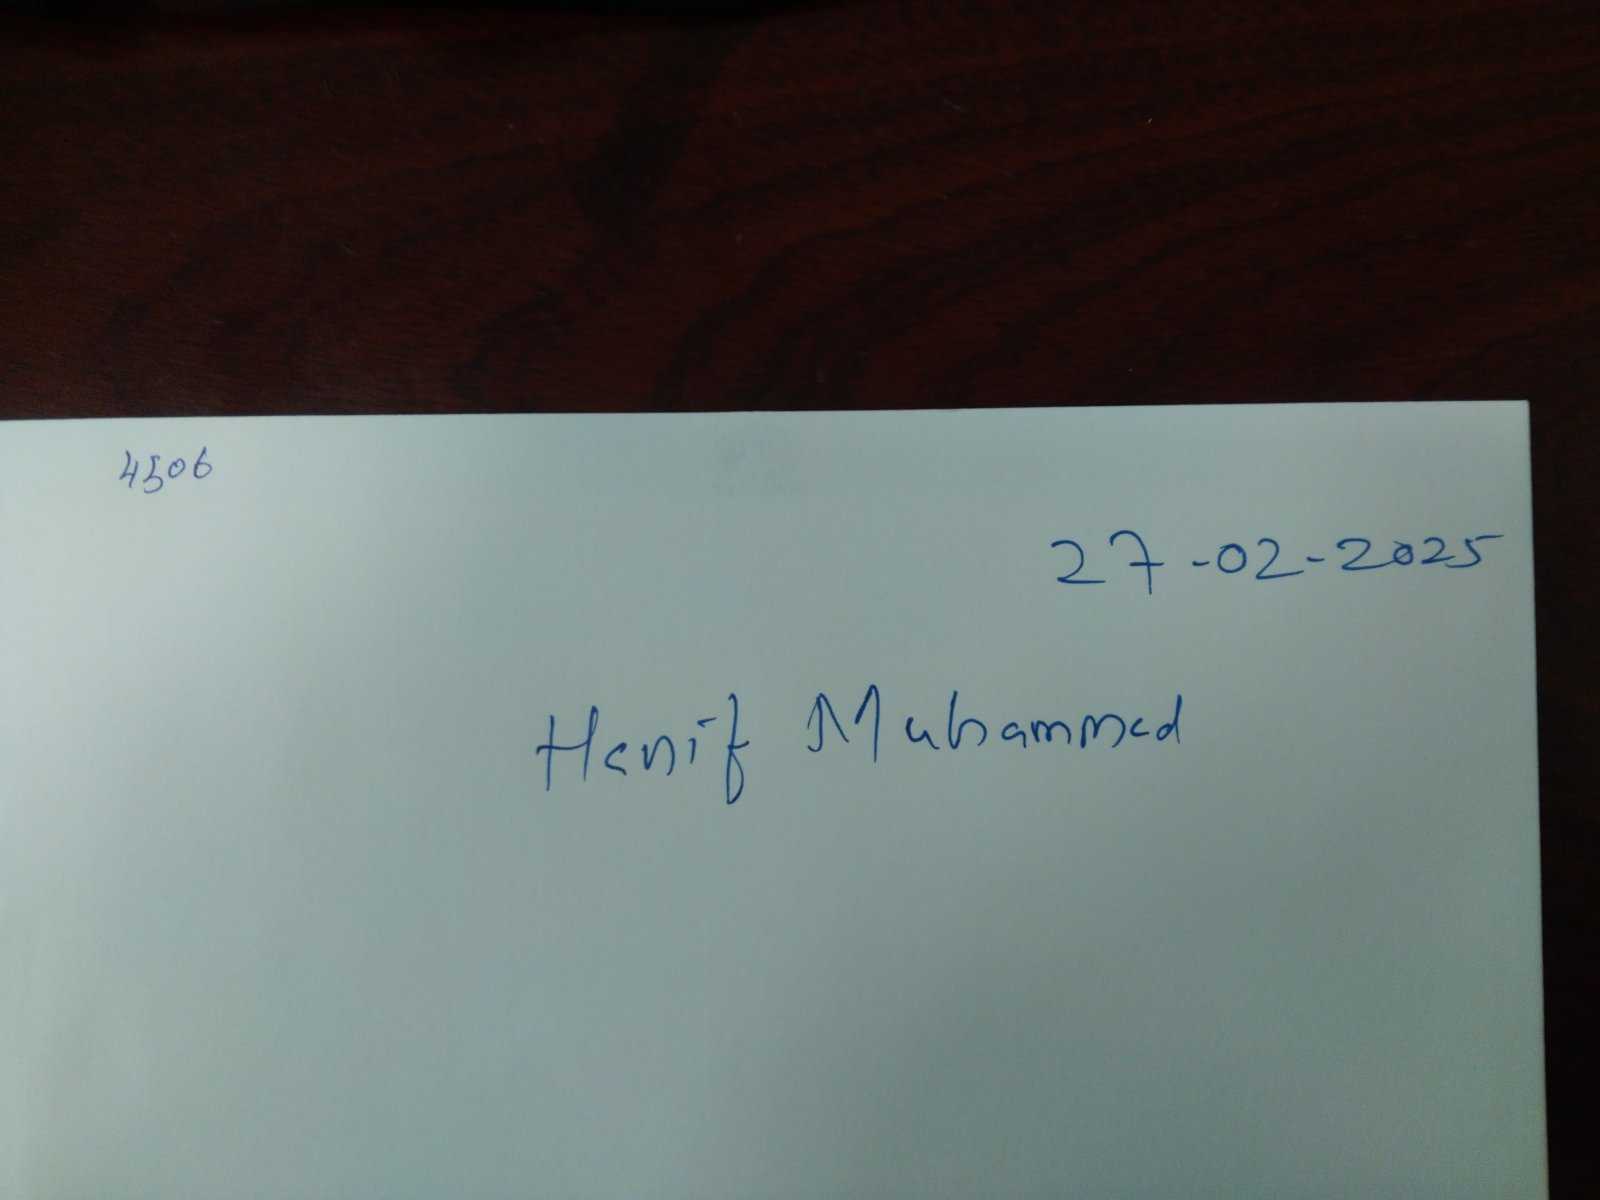 4506
27-02-2025
Hanif Muhammed